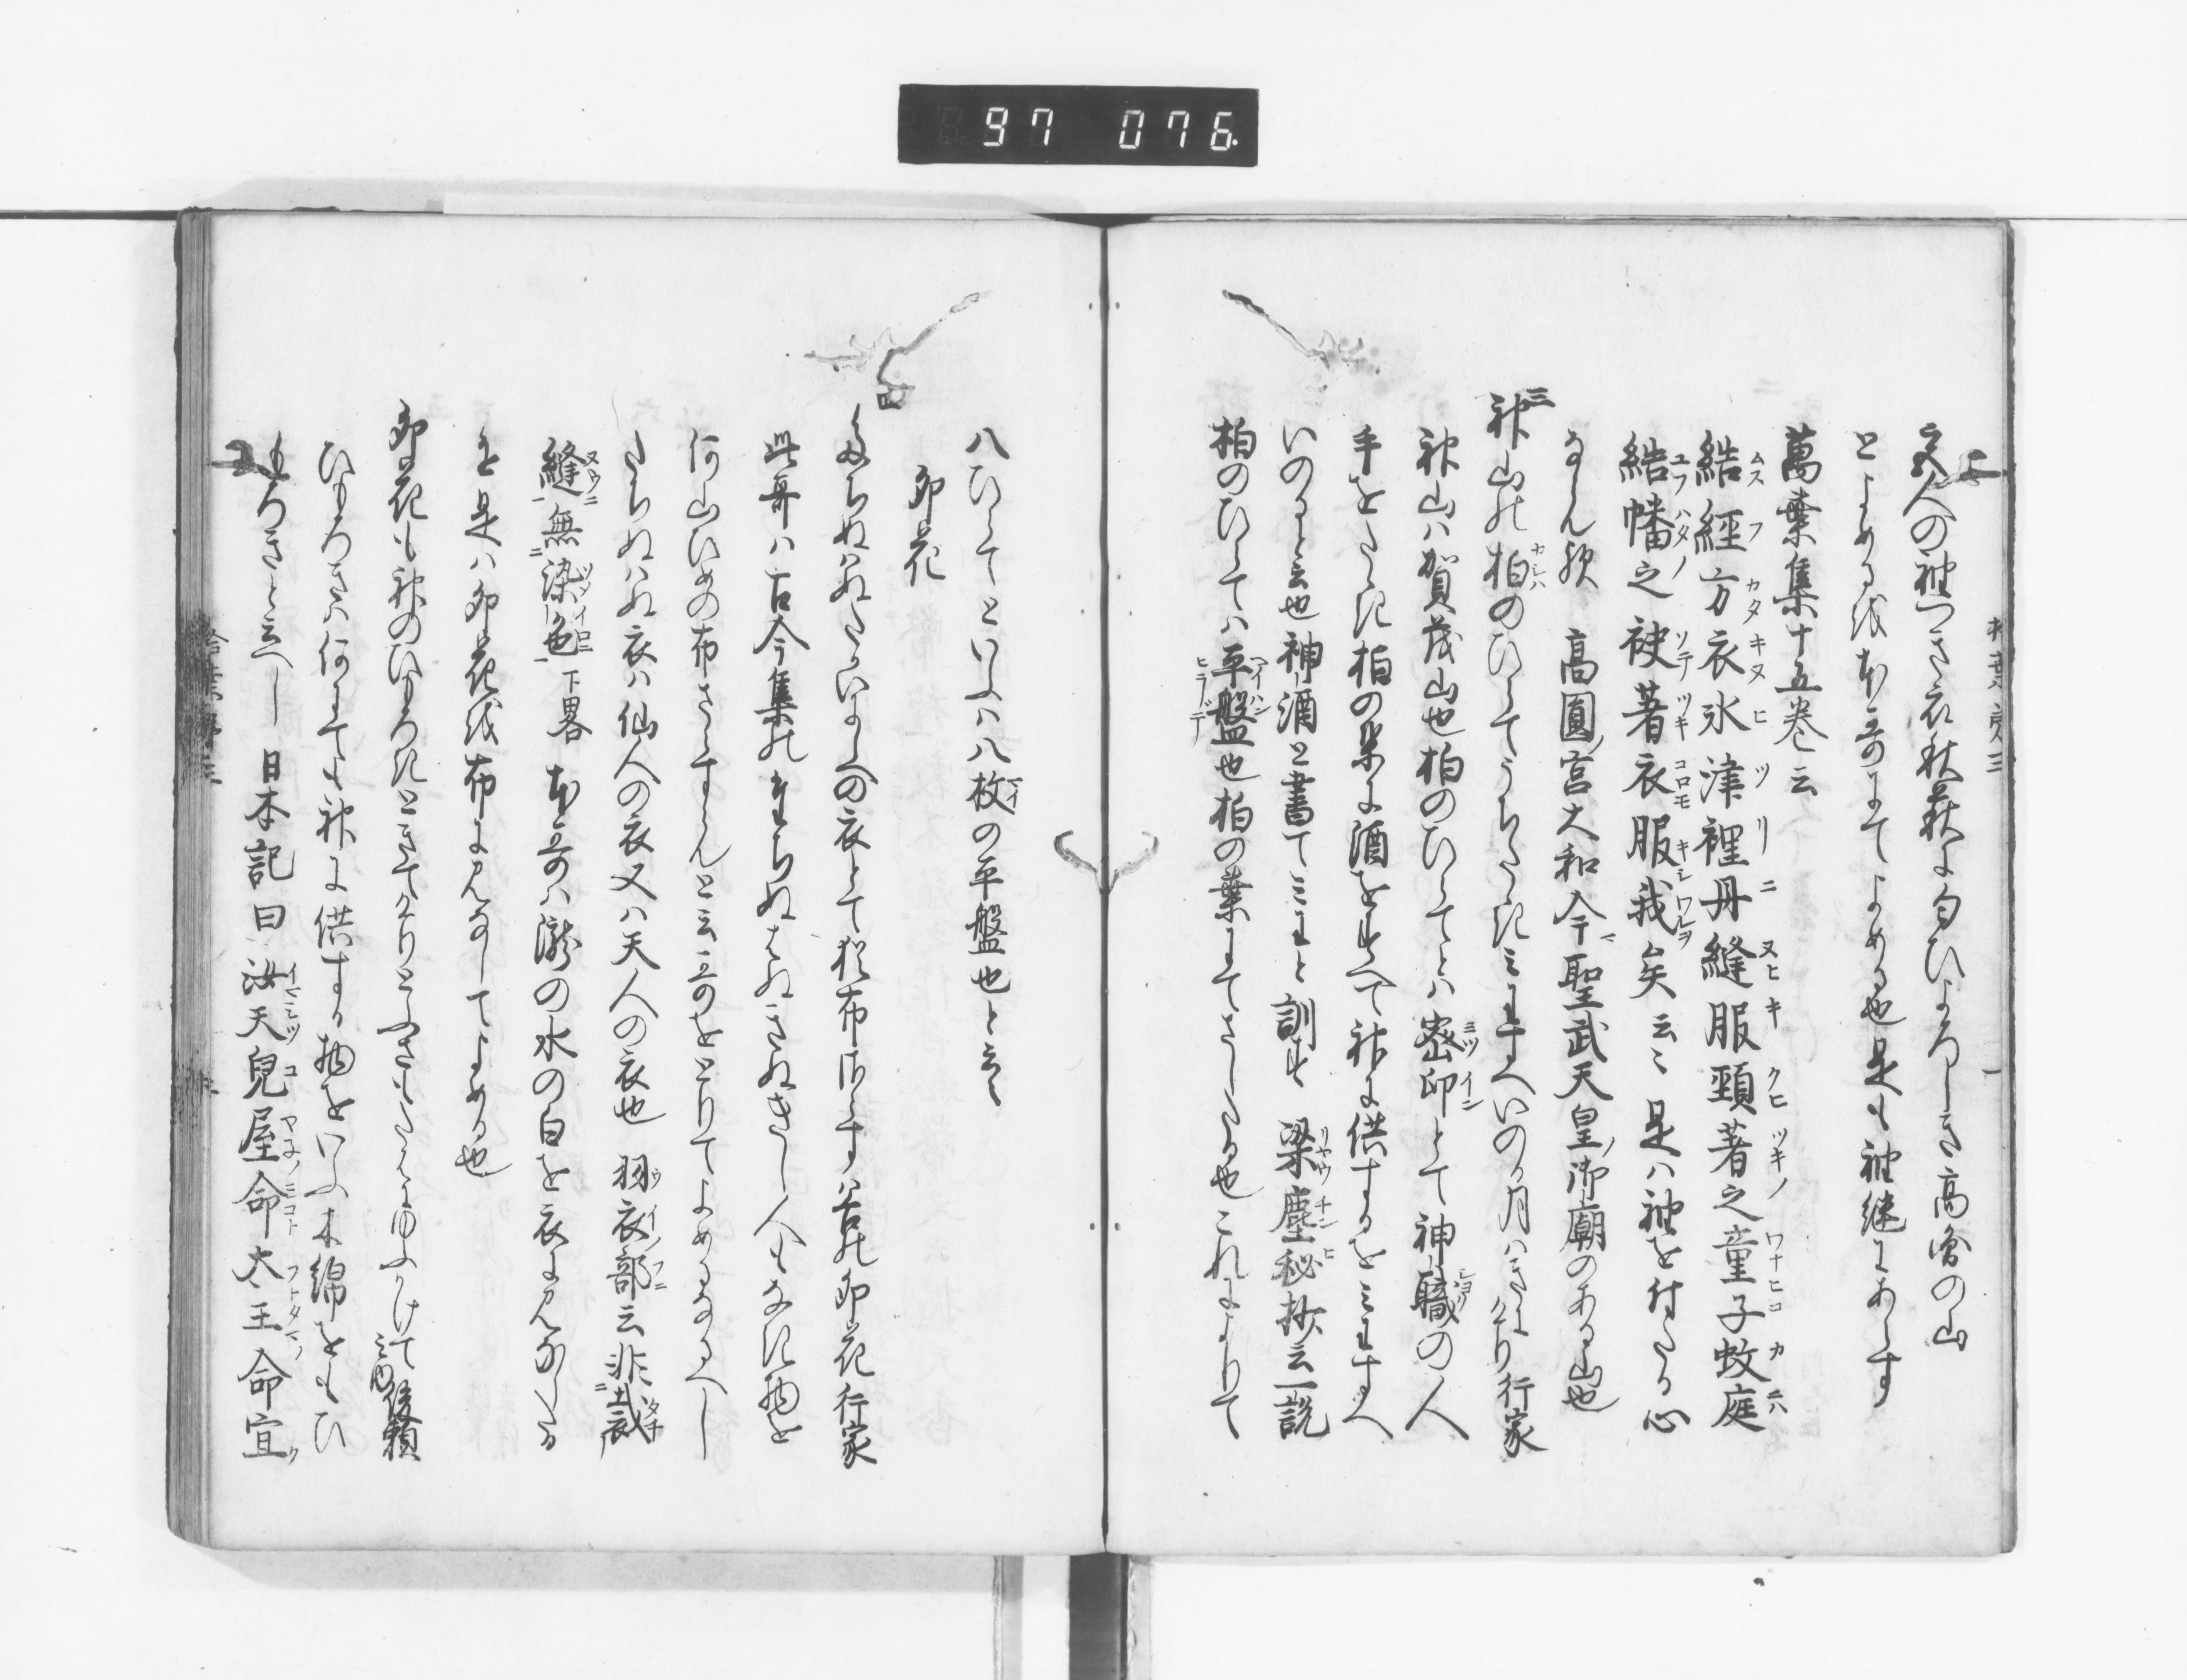 97 076
宮人の袖つき衣秋萩に匂ひよろしき高圓の山
とよめるを本哥にてよめる也是も袖継にあらす
萬葉集十五巻云
結經方衣氷津裡丹縫服頸著之童子蚊庭
結幡之袂著衣服我矣云々是ハ袖を付たる心
なるへし歟 高圓ノ宮大和今聖武天皇ノ御廟のある山也
三
神山の柏のひらてうちたゝきミわすへいのる月ハきにけり行家
神山ハ賀茂山也柏のひらてとハ密印とて神職の人
手をたゝき柏の葉に酒をすへて神に供するをミわすへ
いのると云也神酒と書てミわと訓す 梁塵秘抄云一説
柏のひらてハ平盤也柏の葉にてさしたる也これによりて
八ひらてといふハ八枚の平盤也と云々
卯花
たちぬはぬたかいにしへの衣とて猶布さらす谷の卯花行家
此哥ハ古今集のたちぬはぬきぬきし人もなき物を
何山ひめの布さらすらんと云哥をとりてよめるなるへし
たちぬハぬ衣ハ仙人の衣又ハ天人の衣也 羽衣部云非裁
縫無染色下畧 本哥ハ瀧の水の白を衣に見なしたる
を是ハ卯花を布に見なしてよめる也
卯花も神のひもろきときてけりとふさもたわにゆふかけて 俊頼
ひもろきハ何にても神に供する物をいふ木綿をもひ
もろきと云へし 日本記曰汝天兒屋命太玉命宜